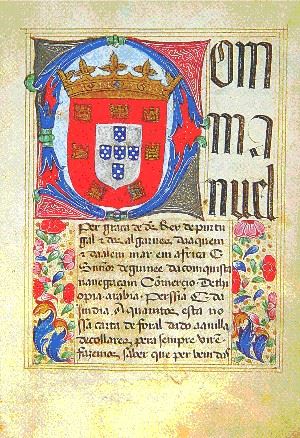 Dom
ma
nuel
Per graça de ds Rey de purtu
gal e dos algarues daaquem
e daalem mar em africa E
Sñor de guinee da comquista
nauegaçam Comercio Dethi
opia arabia Perssia E da
India A quantos esta no
ssa carta de foral dado aa villa
de collares pera sempre virē
fazemos saber que per bem dos